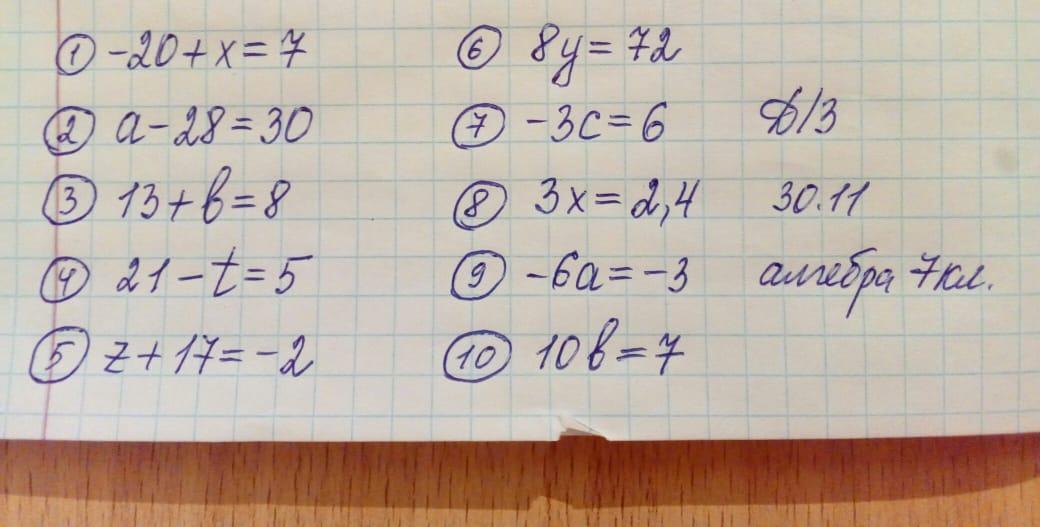 ① -20+x=7
② a-28=30
③ 13+b=8
④ 21-t=5
⑤ z+17=-2
⑥ 8y=72
⑦ -3c=6
⑧ 3x=2,4
⑨ -6a=-3
⑩ 10b=7
Д/З
30.11
алгебра 7кл.